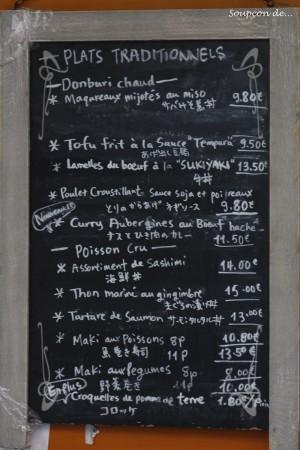 Soupçon de...
PLATS TRADITIONNELS
Donburi chaud
* Maquereaux mijotés au miso
サバみそ煮丼 9.80€
* Tofu frit à la Sauce "Tempura" 9.50€
あげ出し豆腐
* Lamelles du boeuf à la "SUKIYAKI" 13.50€
牛丼
* Poulet Croustillant Sauce soja et poireaux
とりのからあげ ネギソース 9.80€
Nouveauté
* Curry Aubergines au Boeuf haché
ナスとひき肉のカレー 11.50€
Poisson Cru
* Assortiment de Sashimi 14.00€
海鮮丼
* Thon mariné au gingimbre 15.00€
* Tartare de Saumon 13.00€
* Maki aux Poissons 8p 10.80€
魚巻き寿司 11p 13.50€
* Maki aux legumes 8p 8.00€
野菜巻き 11p 10.00€
En plus
* Croquettes de pomme de terre 1.80€
コロッケ